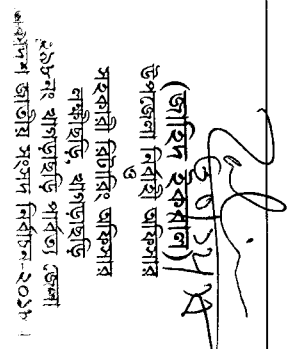 (জাহিদ ইকবাল)
উপজেলা নির্বাহী অফিসার
ও
সহকারী রিটার্নিং অফিসার
লক্ষীছড়ি, খাগড়াছড়ি
২৯৮নং খাগড়াছড়ি পার্বত্য জেলা
একাদশ জাতীয় সংসদ নির্বাচন-২০১৮ ।